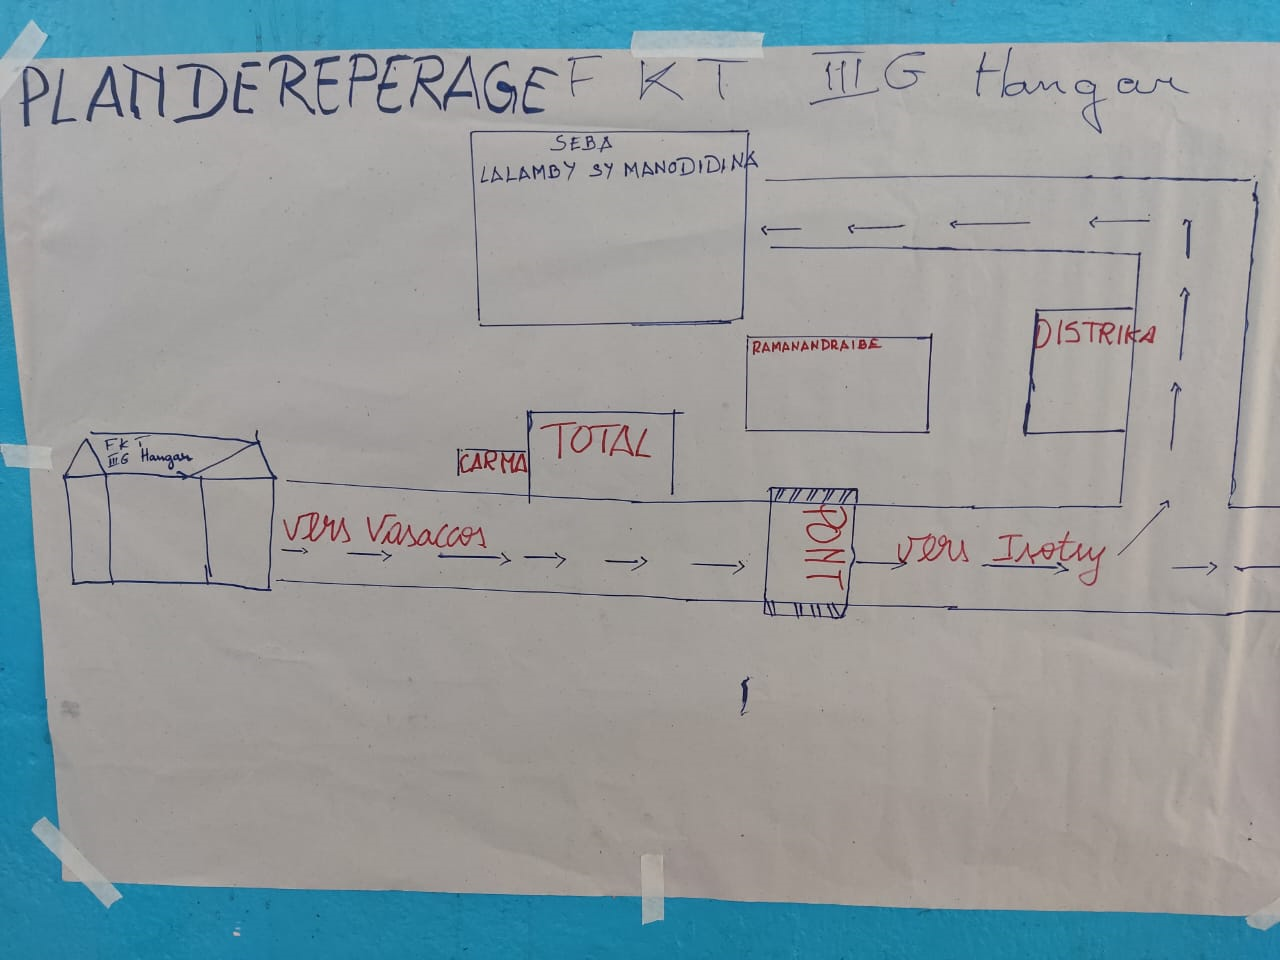 PLAN DE REPERAGE F K T III G Hangar
SEBA
LALAMBY SY MANODIDINA
DISTRIKA
RAMANANDRAIBE
TOTAL
CARMA
F K T
III G Hangar
vers Vasaccos
PONT
vers Isotry